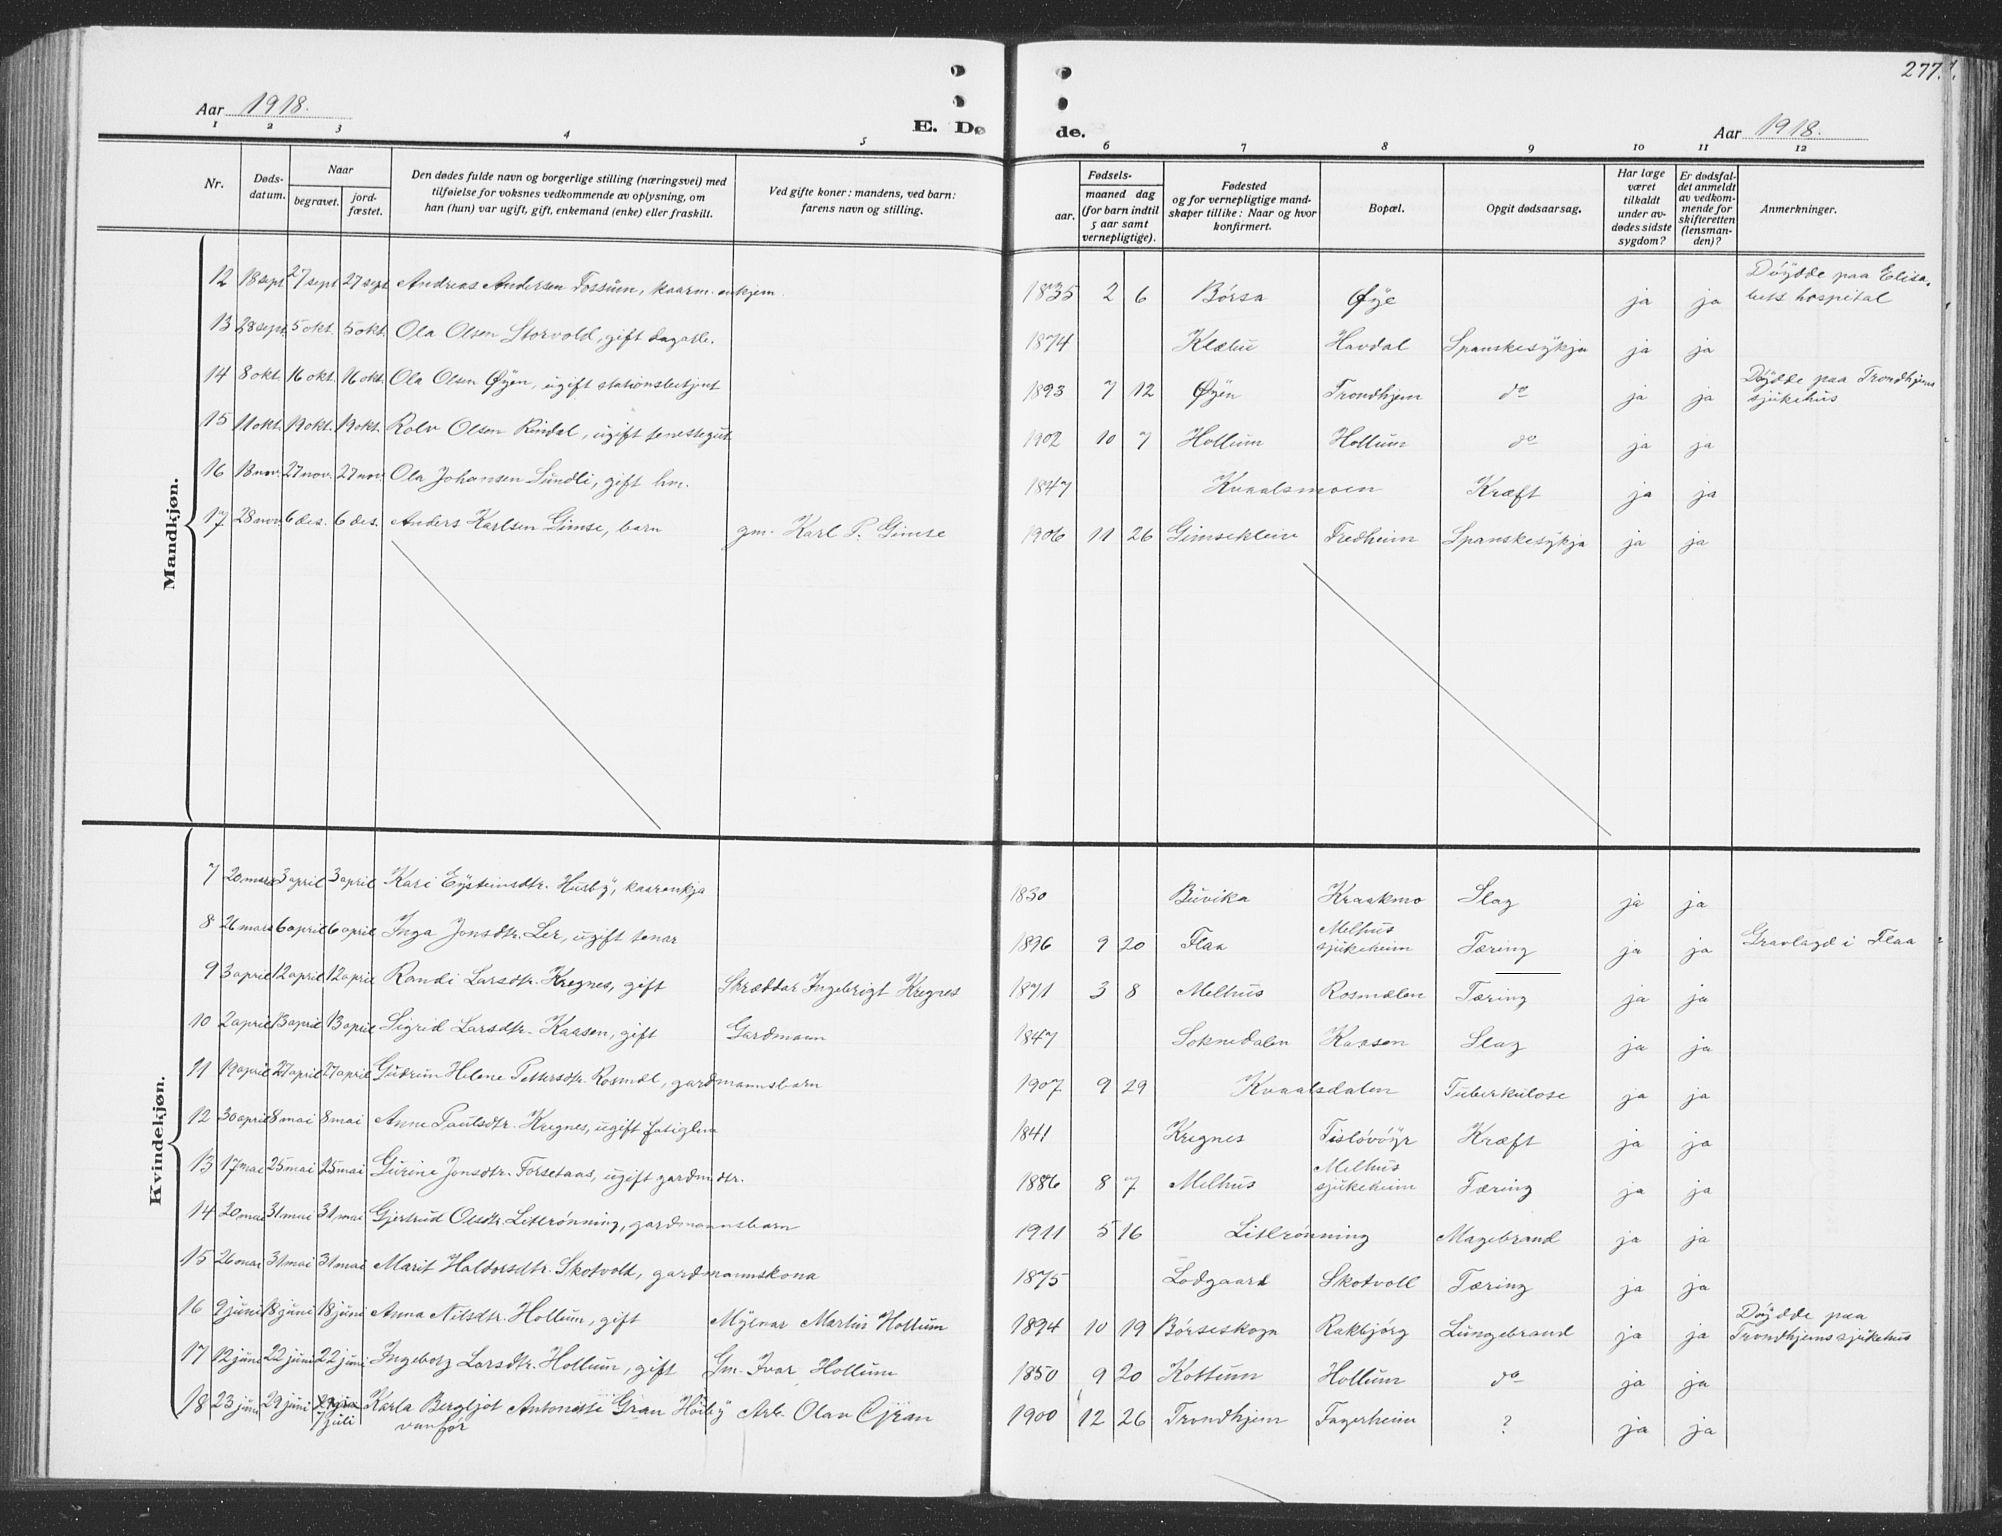 277.
Aar 1918.
E. Dø de.
Aar 1918.
1 2 3 4 5 6 7 8 9 10 11 12
Nr.
Døds-
datum.
Naar
begravet.
jord-
fæstet.
Den dødes fulde navn og borgerlige stilling (næringsvei) med
tilføielse for voksnes vedkommende av oplysning, om
han (hun) var ugift, gift, enkemand (enke) eller fraskilt.
Ved gifte koner: mandens, ved barn:
farens navn og stilling.
Fødsels-
aar.
maaned dag
(for barn indtil
5 aar samt
vernepligtige).
Fødested
og for vernepligtige mand-
skaper tillike: Naar og hvor
konfirmert.
Bopæl.
Opgit dødsaarsag.
Har læge
været
tilkaldt
under av-
dødes sidste
sygdom?
Er dødsfal-
det anmeldt
av vedkom-
mende for
skifteretten
(lensman-
den)?
Anmerkninger.
Mandkjøn.
12 18 sept 27 sept 27 sept Andreas Andersen Fossum, kaarm. enkjem. 1835 2 6 Børsa Øye ja ja Døydde paa Elisa-
bets hospital
13 28 sept. 5 okt. 5 okt. Ola Olsen Storvold, gift dagarb. 1874 Klæbu Havdal Spanskesykja ja ja
14 8 okt. 16 okt. 16 okt. Ola Olsen Øyen, ugift stationsbetjent 1893 7 12 Øyen Trondhjem do ja ja Døydde paa Trondhjems
sjukehus
15 11 okt. 19 okt. 19 okt. Rolv Olsen Rindal, ugift tenestegut 1902 10 7 Hollum Hollum do ja ja
16 18 nov. 27 nov. 27 nov. Ola Johansen Sundli, gift hm. 1847 Kvaalsmoen Kræft ja ja
17 28 nov 6 des. 6 des. Anders Karlsen Gimse, barn gm. Karl P. Gimse 1906 11 26 Gimsekleiv Fredheim Spanskesykja ja ja
Kvindekjøn.
7 20 mars 3 april 3 april Kari Eysteinsdtr. Husby, kaarenkja 1830 Buvika Kraakmo Slag ja ja
8 26 mars 6 april 6 april Inga Jonsdtr. Ler, ugift tenar 1896 9 20 Flaa Melhus
sjukeheim Tæring ja ja Gravlagd i Flaa
9 3 april 12 april 12 april Randi Larsdtr. Kregnes, gift Skræddar Ingebrigt Kregnes 1871 3 8 Melhus Rosmælen Tæring ja ja
10 2 april 13 april 13 april Sigrid Larsdtr. Kaasen, gift Gardmann 1847 Soknedalen Kaasen Slag ja ja
11 19 april 27 april 27 april Gudrun Helene Pettersdtr. Rosmæl, gardmannsbarn 1907 9 29 Kvaalsdalen Tuberkulose ja ja
12 30 april 8 mai 8 mai Anne Paulsdtr. Kregnes, ugift fatiglem 1841 Kregnes Tisløvøyr Kræft ja ja
13 17 mai 25 mai 25 mai Gurine Jonsdtr. Forsetaas, ugift gardmdtr. 1886 8 7 Melhus Melhus
sjukeheim Tæring ja ja
14 20 mai 31 mai 31 mai Gjertrud Olsdtr. Litlrønning, gardmannsbarn 1911 5 16 Litlrønning Magebrand ja ja
15 26 mai 31 mai 31 mai Marit Haldorsdtr. Skotvoll, gardmannskona 1875 Lodgaard Skotvoll Tæring ja ja
16 9 juni 18 juni 18 juni Anna Nilsdtr. Hollum, gift Mylnar Martin Hollum 1894 10 19 Børseskogn Rakbjørg Lungebrand ja ja Døydde paa
Trondhjems sjukehus
17 12 juni 22 juni 22 juni Ingeborg Larsdtr. Hollum, gift Gm. Ivar Hollum 1850 9 20 Kottum Hollum do ja ja
18 23 juni 29 juni 7 juli Karla Bergljot Antonette Gran Høiby Arb. Olav Gran 1900 12 26 Trondhjem Fagerheim ? ja ja
vanfør